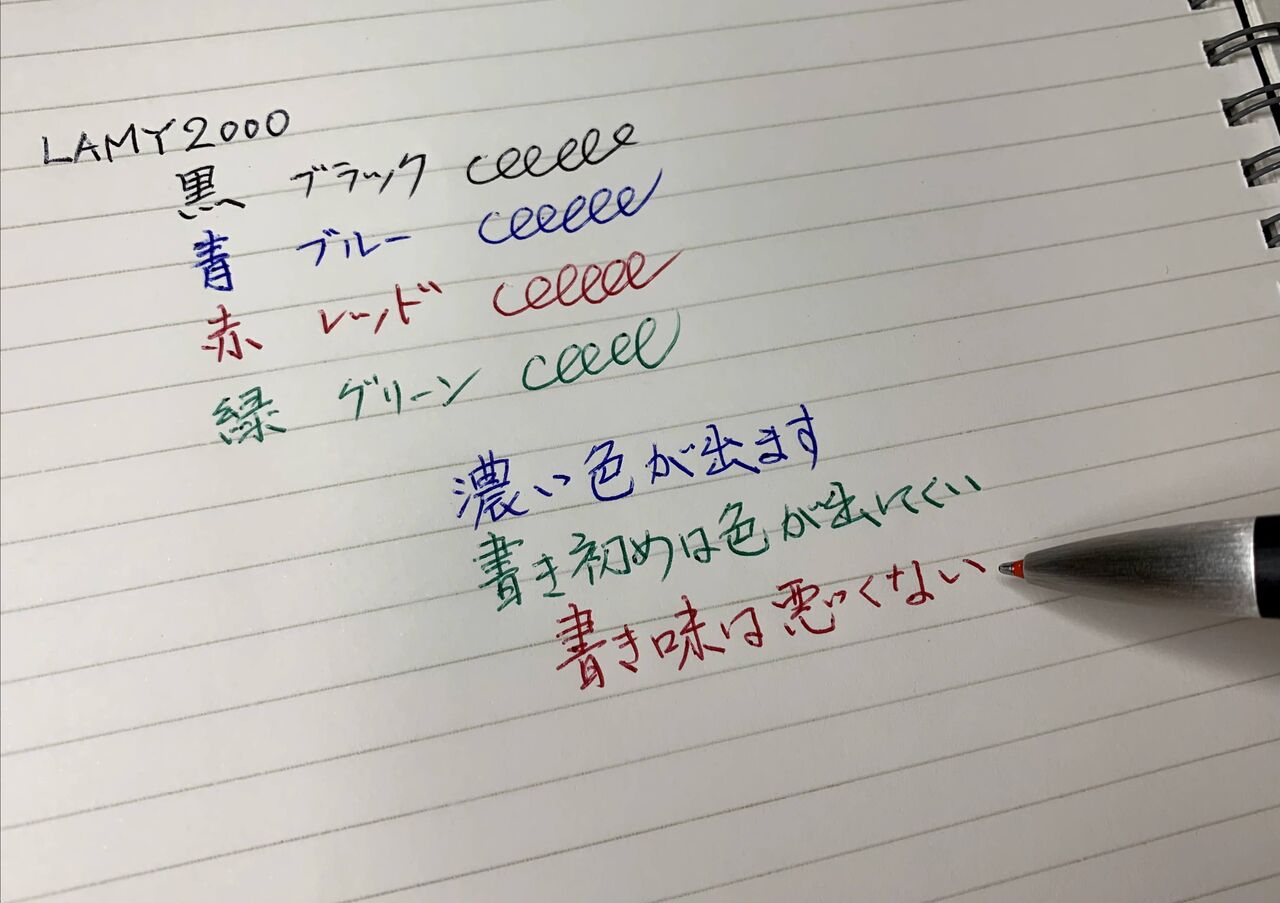 LAMY2000
黒 ブラック
青 ブルー
赤 レッド
緑 グリーン
濃い色が出ます
書き初めは色が出にくい
書き味は悪くない